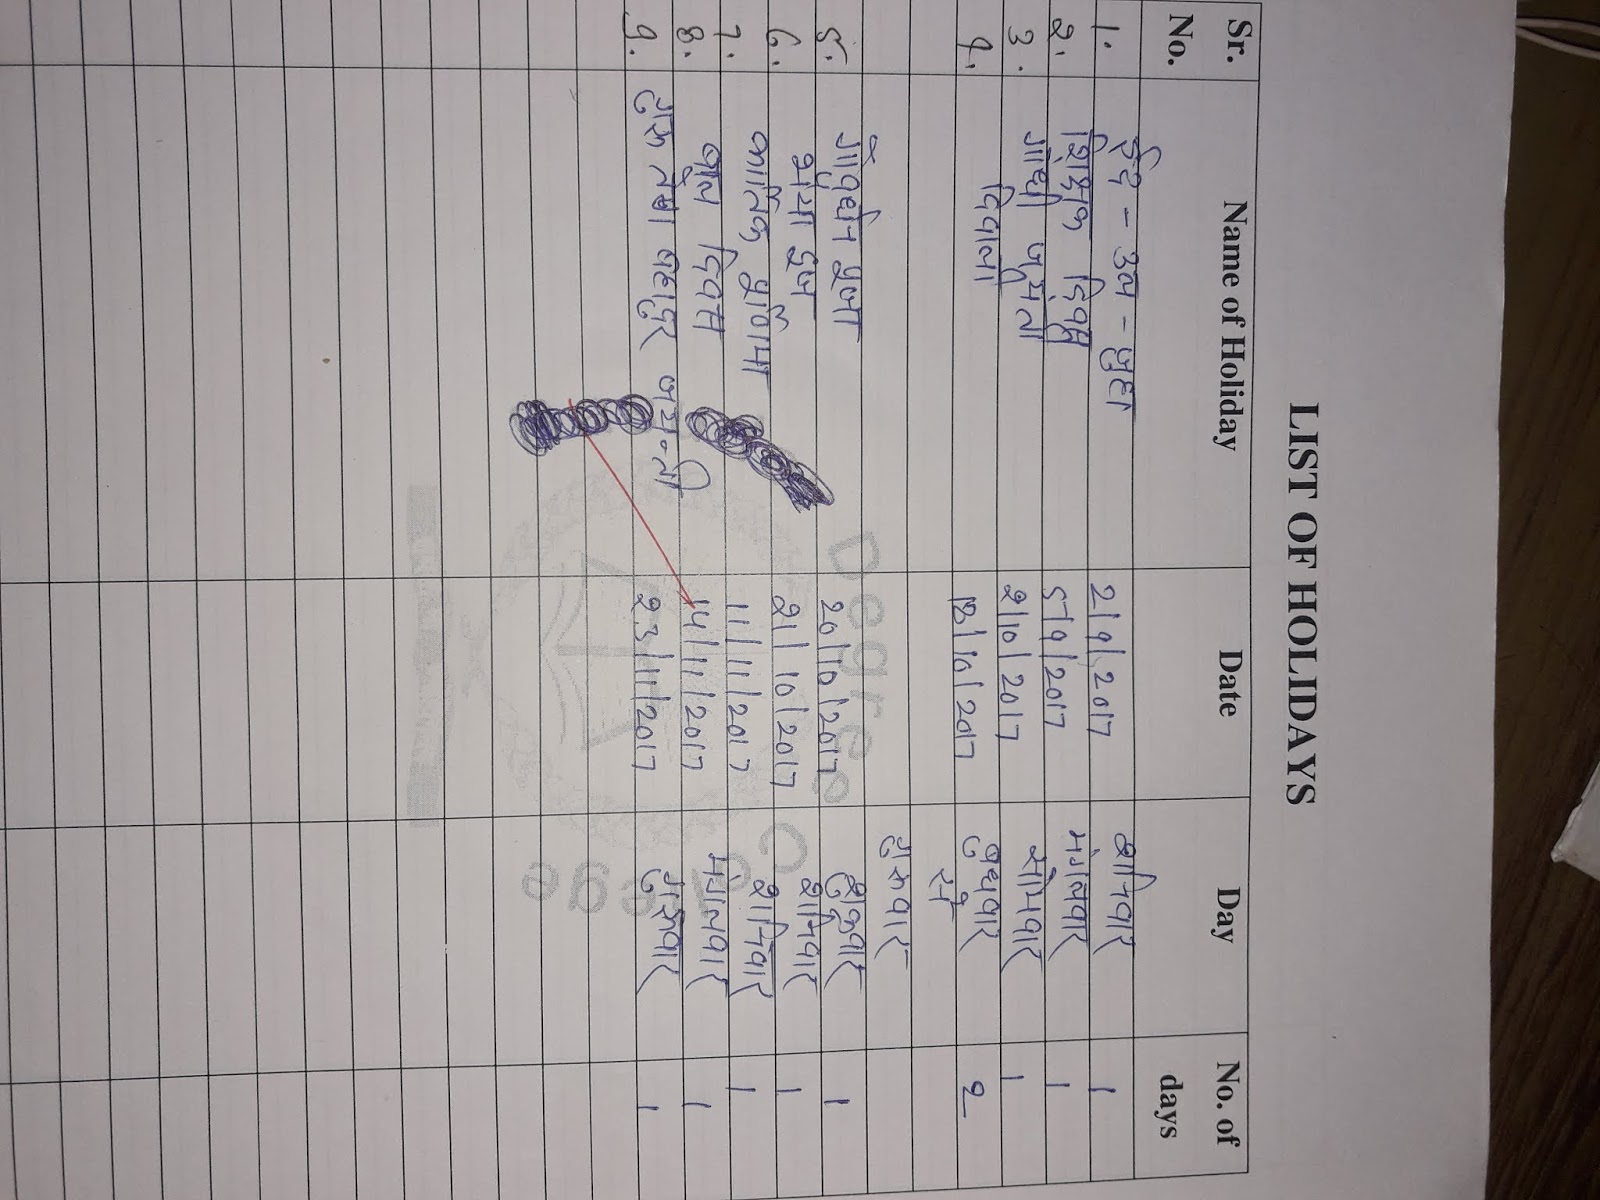 LIST OF HOLIDAYS
Sr. No. Name of Holiday Date Day No. of days
1. ईद - उल - जुहा 2/9/2017 शनिवार 1
2. शिक्षक दिवस 5/9/2017 मंगलवार 1
3. गांधी जयन्ती 2/10/2017 सोमवार 1
4. दिवाली 18/10/2017 बुधवार 2
से
गुरुवार
5. गोवर्धन पूजा 20/10/2017 शुक्रवार 1
6. भैया दूज 21/10/2017 शनिवार 1
7. कार्तिक पूर्णिमा 11/11/2017 शनिवार 1
8. बाल दिवस 14/11/2017 मंगलवार 1
9. गुरु तेग बहादुर जयन्ती 23/11/2017 गुरुवार 1
Degree College